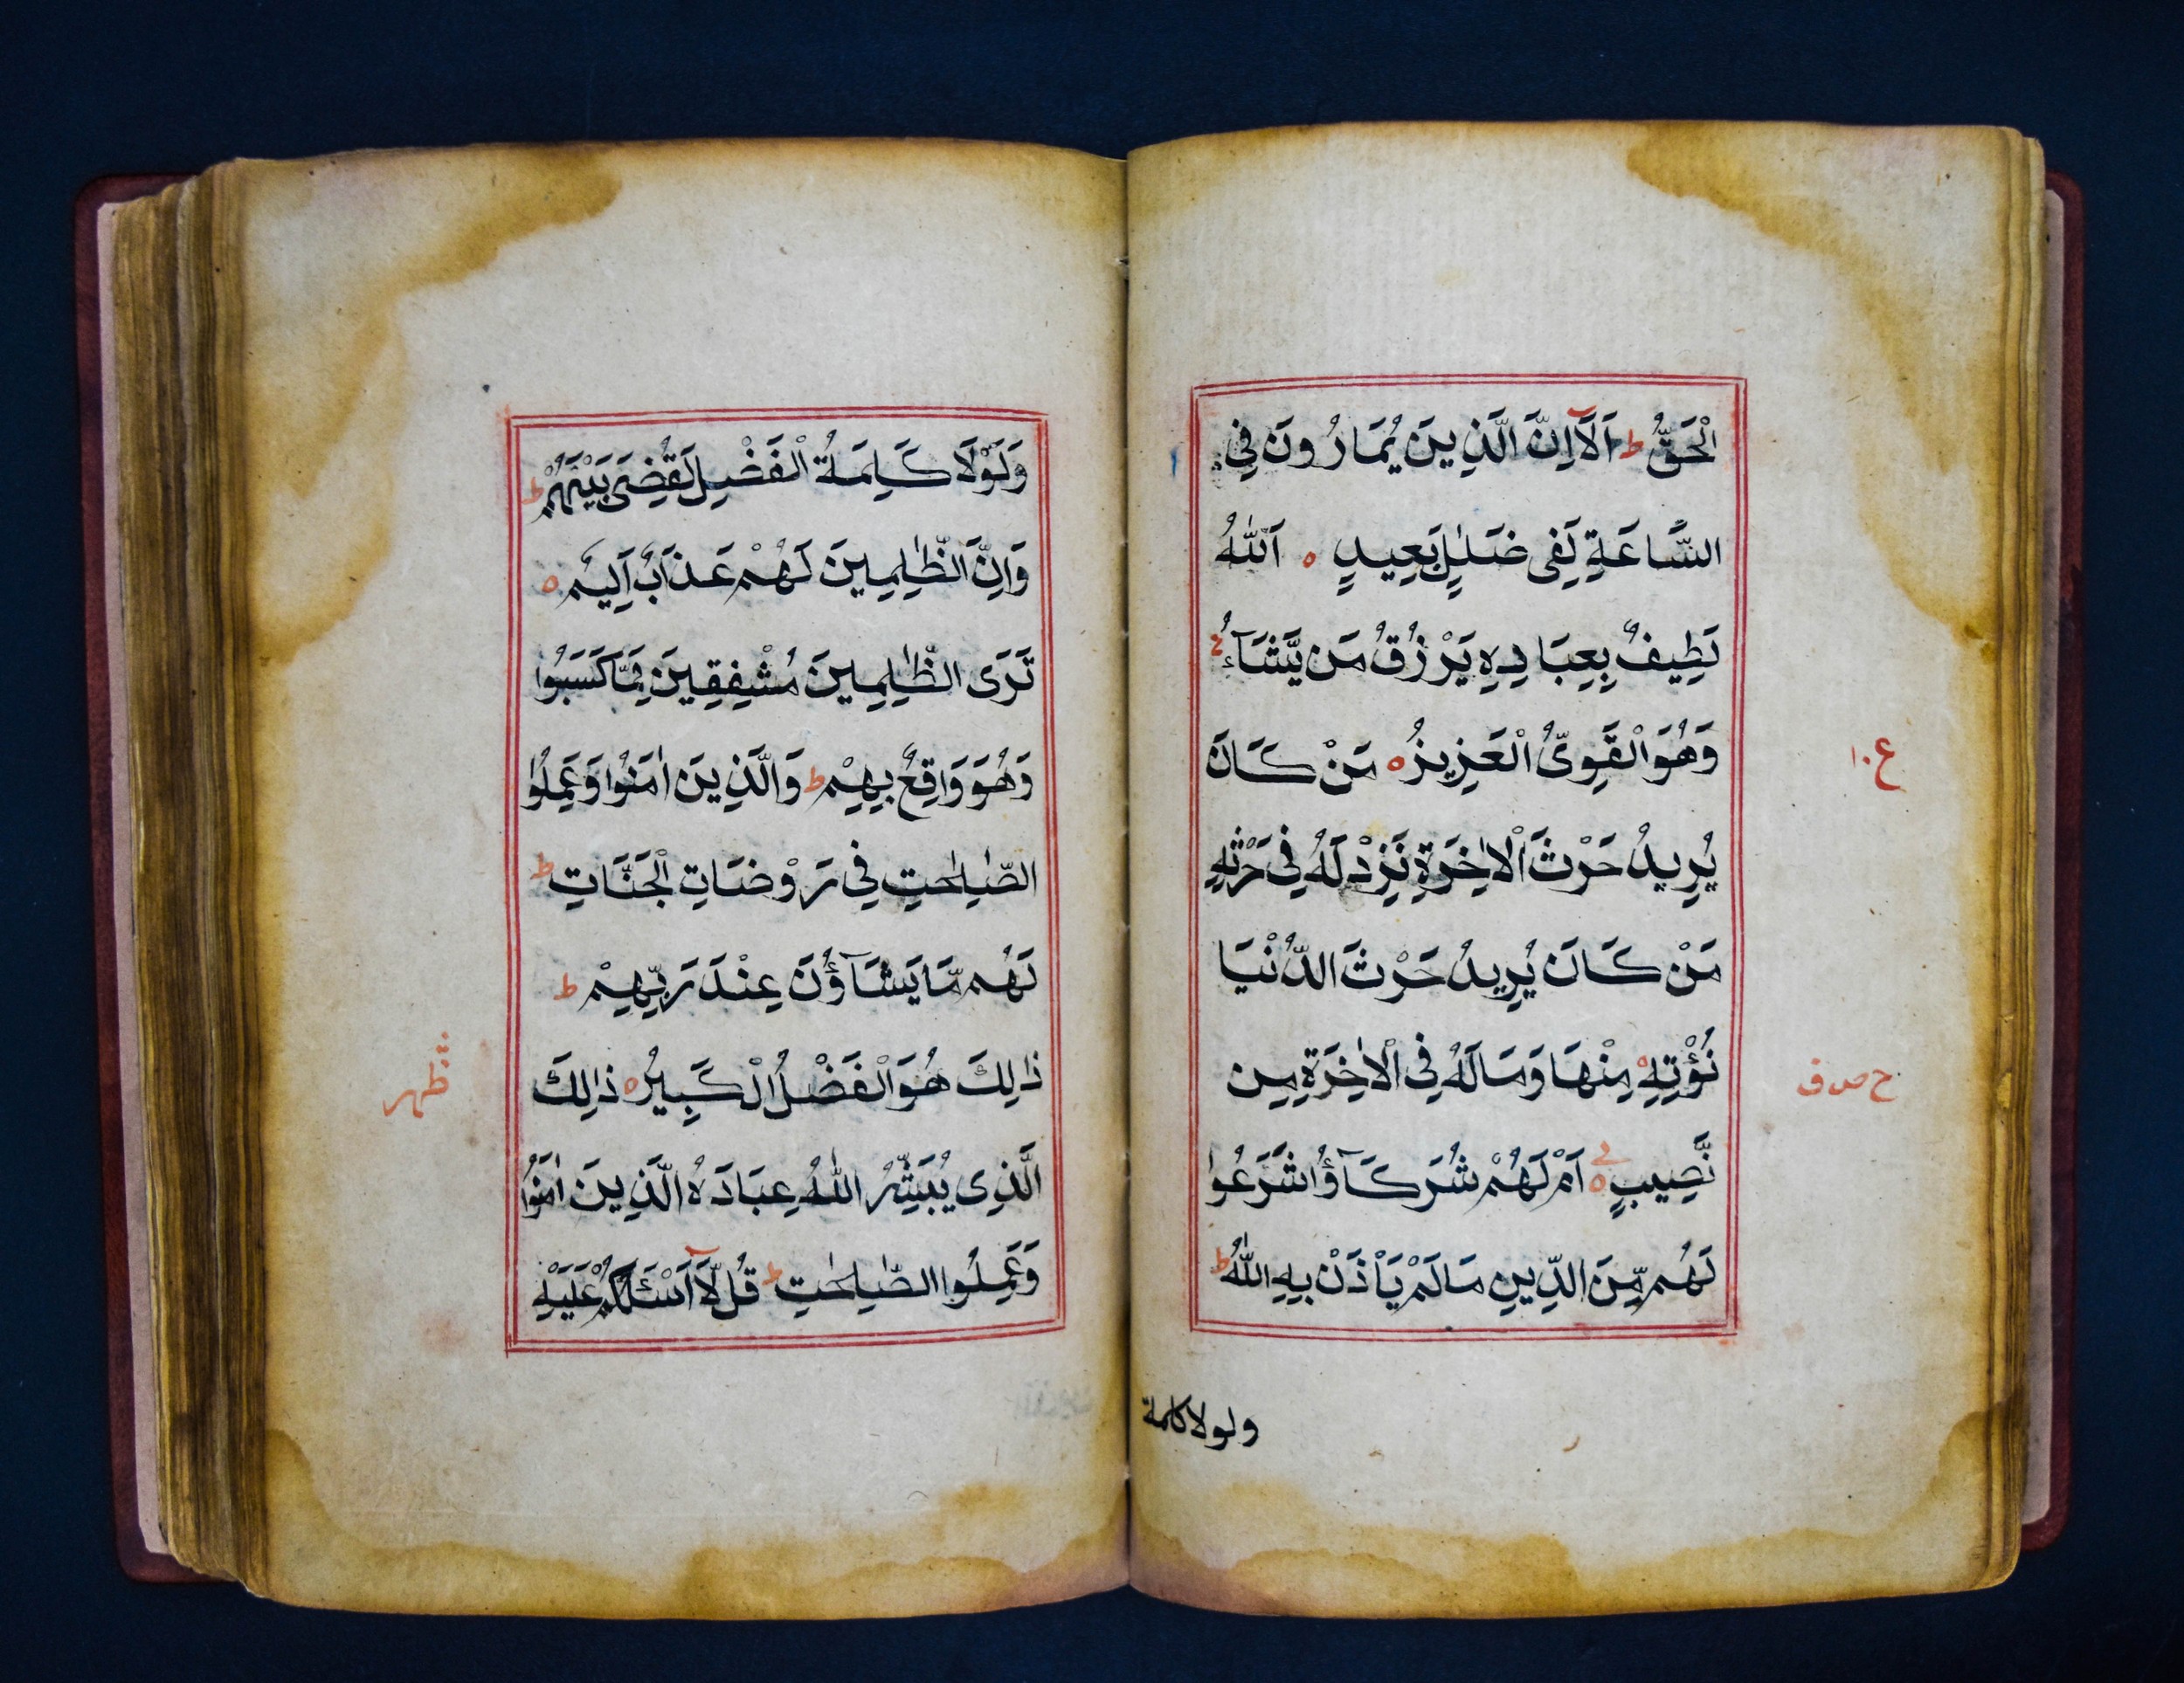 الْحَقُّ ط اَلَآ اِنَّ الَّذِينَ يُمَارُونَ فِي
السَّاعَةِ لَفِى ضَلٰلٍ بَعِيدٍ ه اَللّٰهُ
لَطِيفٌ بِعِبَادِهِ يَرْزُقُ مَن يَّشَآءُ
وَهُوَ الْقَوِىُّ الْعَزِيزُ ه مَنْ كَانَ
ع ١٠
يُرِيدُ حَرْثَ الْاٰخِرَةِ نَزِدْ لَهُ فِي حَرْثِهِ
مَنْ كَانَ يُرِيدُ حَرْثَ الدُّنْيَا
نُؤْتِهِ مِنْهَا وَمَا لَهُ فِي الْاٰخِرَةِ مِن
نَّصِيبٍ ه اَمْ لَهُمْ شُرَكَآؤُا شَرَعُوا
لَهُم مِّنَ الدِّينِ مَا لَمْ يَأْذَنْ بِهِ اللّٰهُ ط
ولولا كلمة
وَلَوْلَا كَلِمَةُ الْفَصْلِ لَقُضِىَ بَيْنَهُمْ ط
وَاِنَّ الظّٰلِمِينَ لَهُمْ عَذَابٌ اَلِيم ه
تَرَى الظّٰلِمِينَ مُشْفِقِينَ مِمَّا كَسَبُوا
وَهُوَ وَاقِعٌ بِهِمْ ط وَالَّذِينَ اٰمَنُوا وَعَمِلُوا
الصّٰلِحٰتِ فِي رَوْضَاتِ الْجَنَّاتِ ط
لَهُم مَّا يَشَآؤُنَ عِنْدَ رَبِّهِمْ ط
ذٰلِكَ هُوَ الْفَضْلُ الْكَبِيرُ ه ذٰلِكَ
الَّذِى يُبَشِّرُ اللّٰهُ عِبَادَهُ الَّذِينَ اٰمَنُوا
وَعَمِلُوا الصّٰلِحٰتِ ط قُل لَّآ اَسْئَلُكُمْ عَلَيْهِ